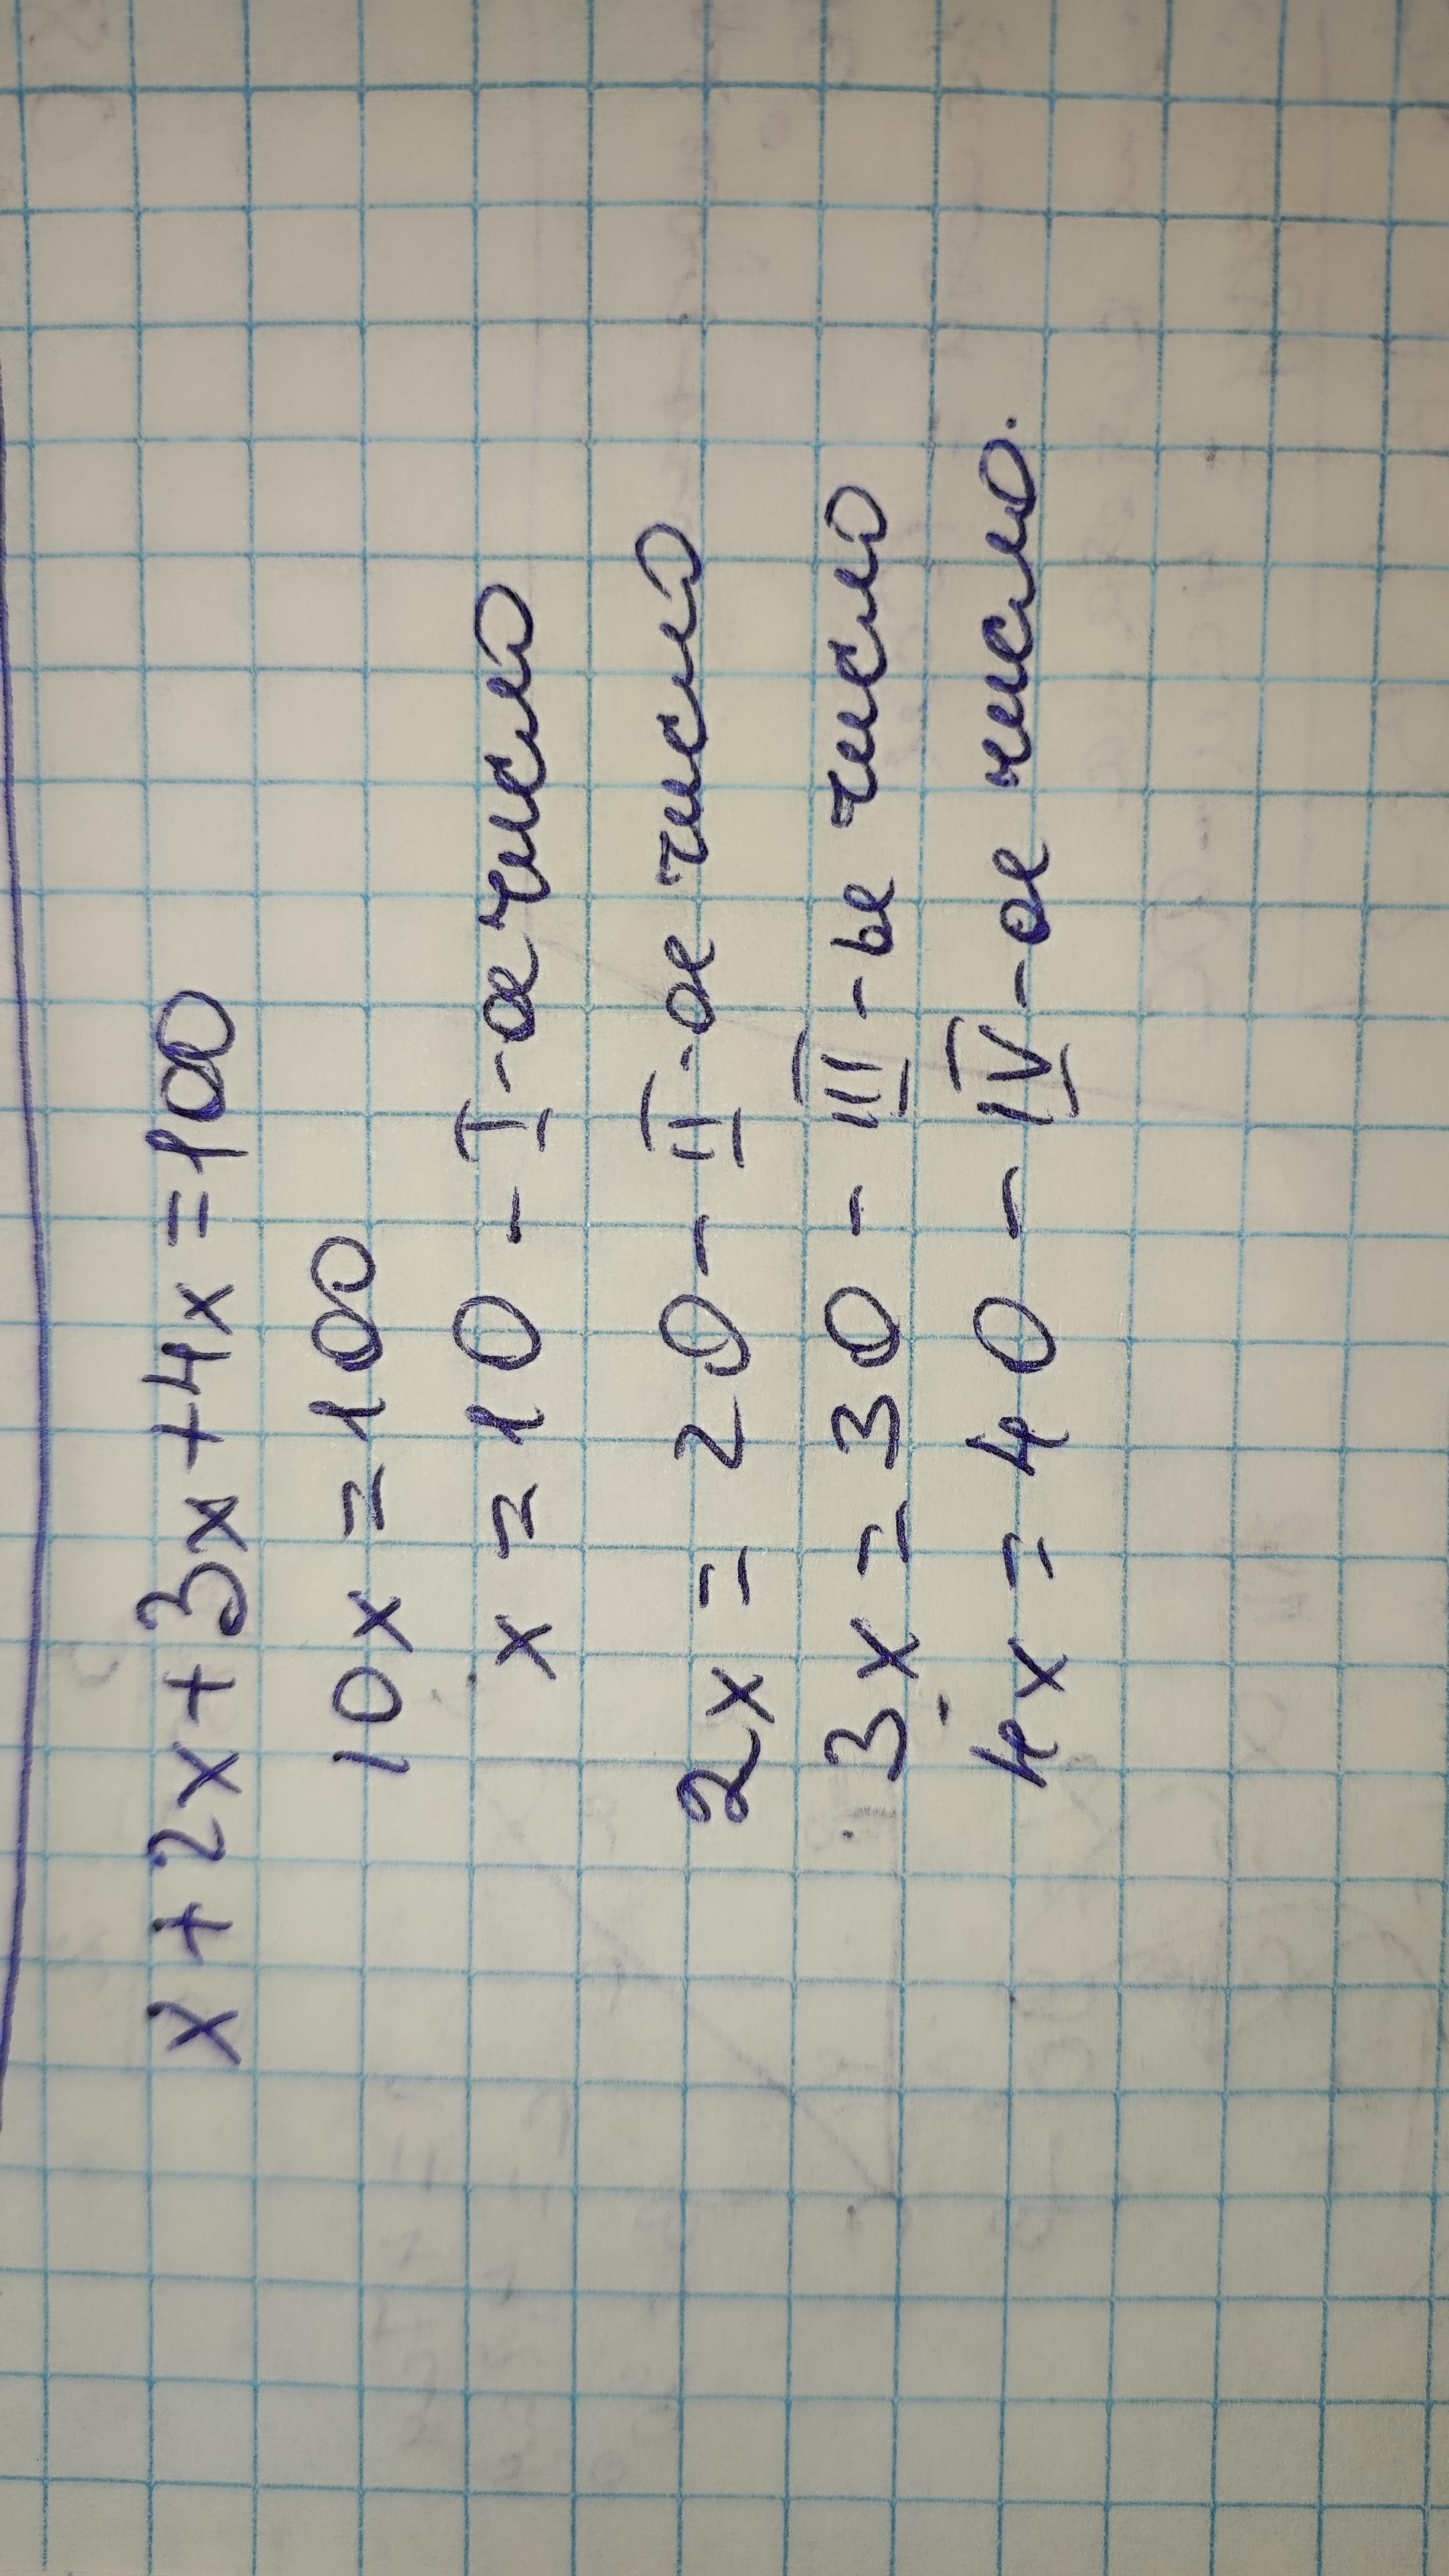 x + 2x + 3x + 4x = 100
10x = 100
x = 10 - I-ое число
2x = 20 - II-ое число
3x = 30 - III-ье число
4x = 40 - IV-ое число.